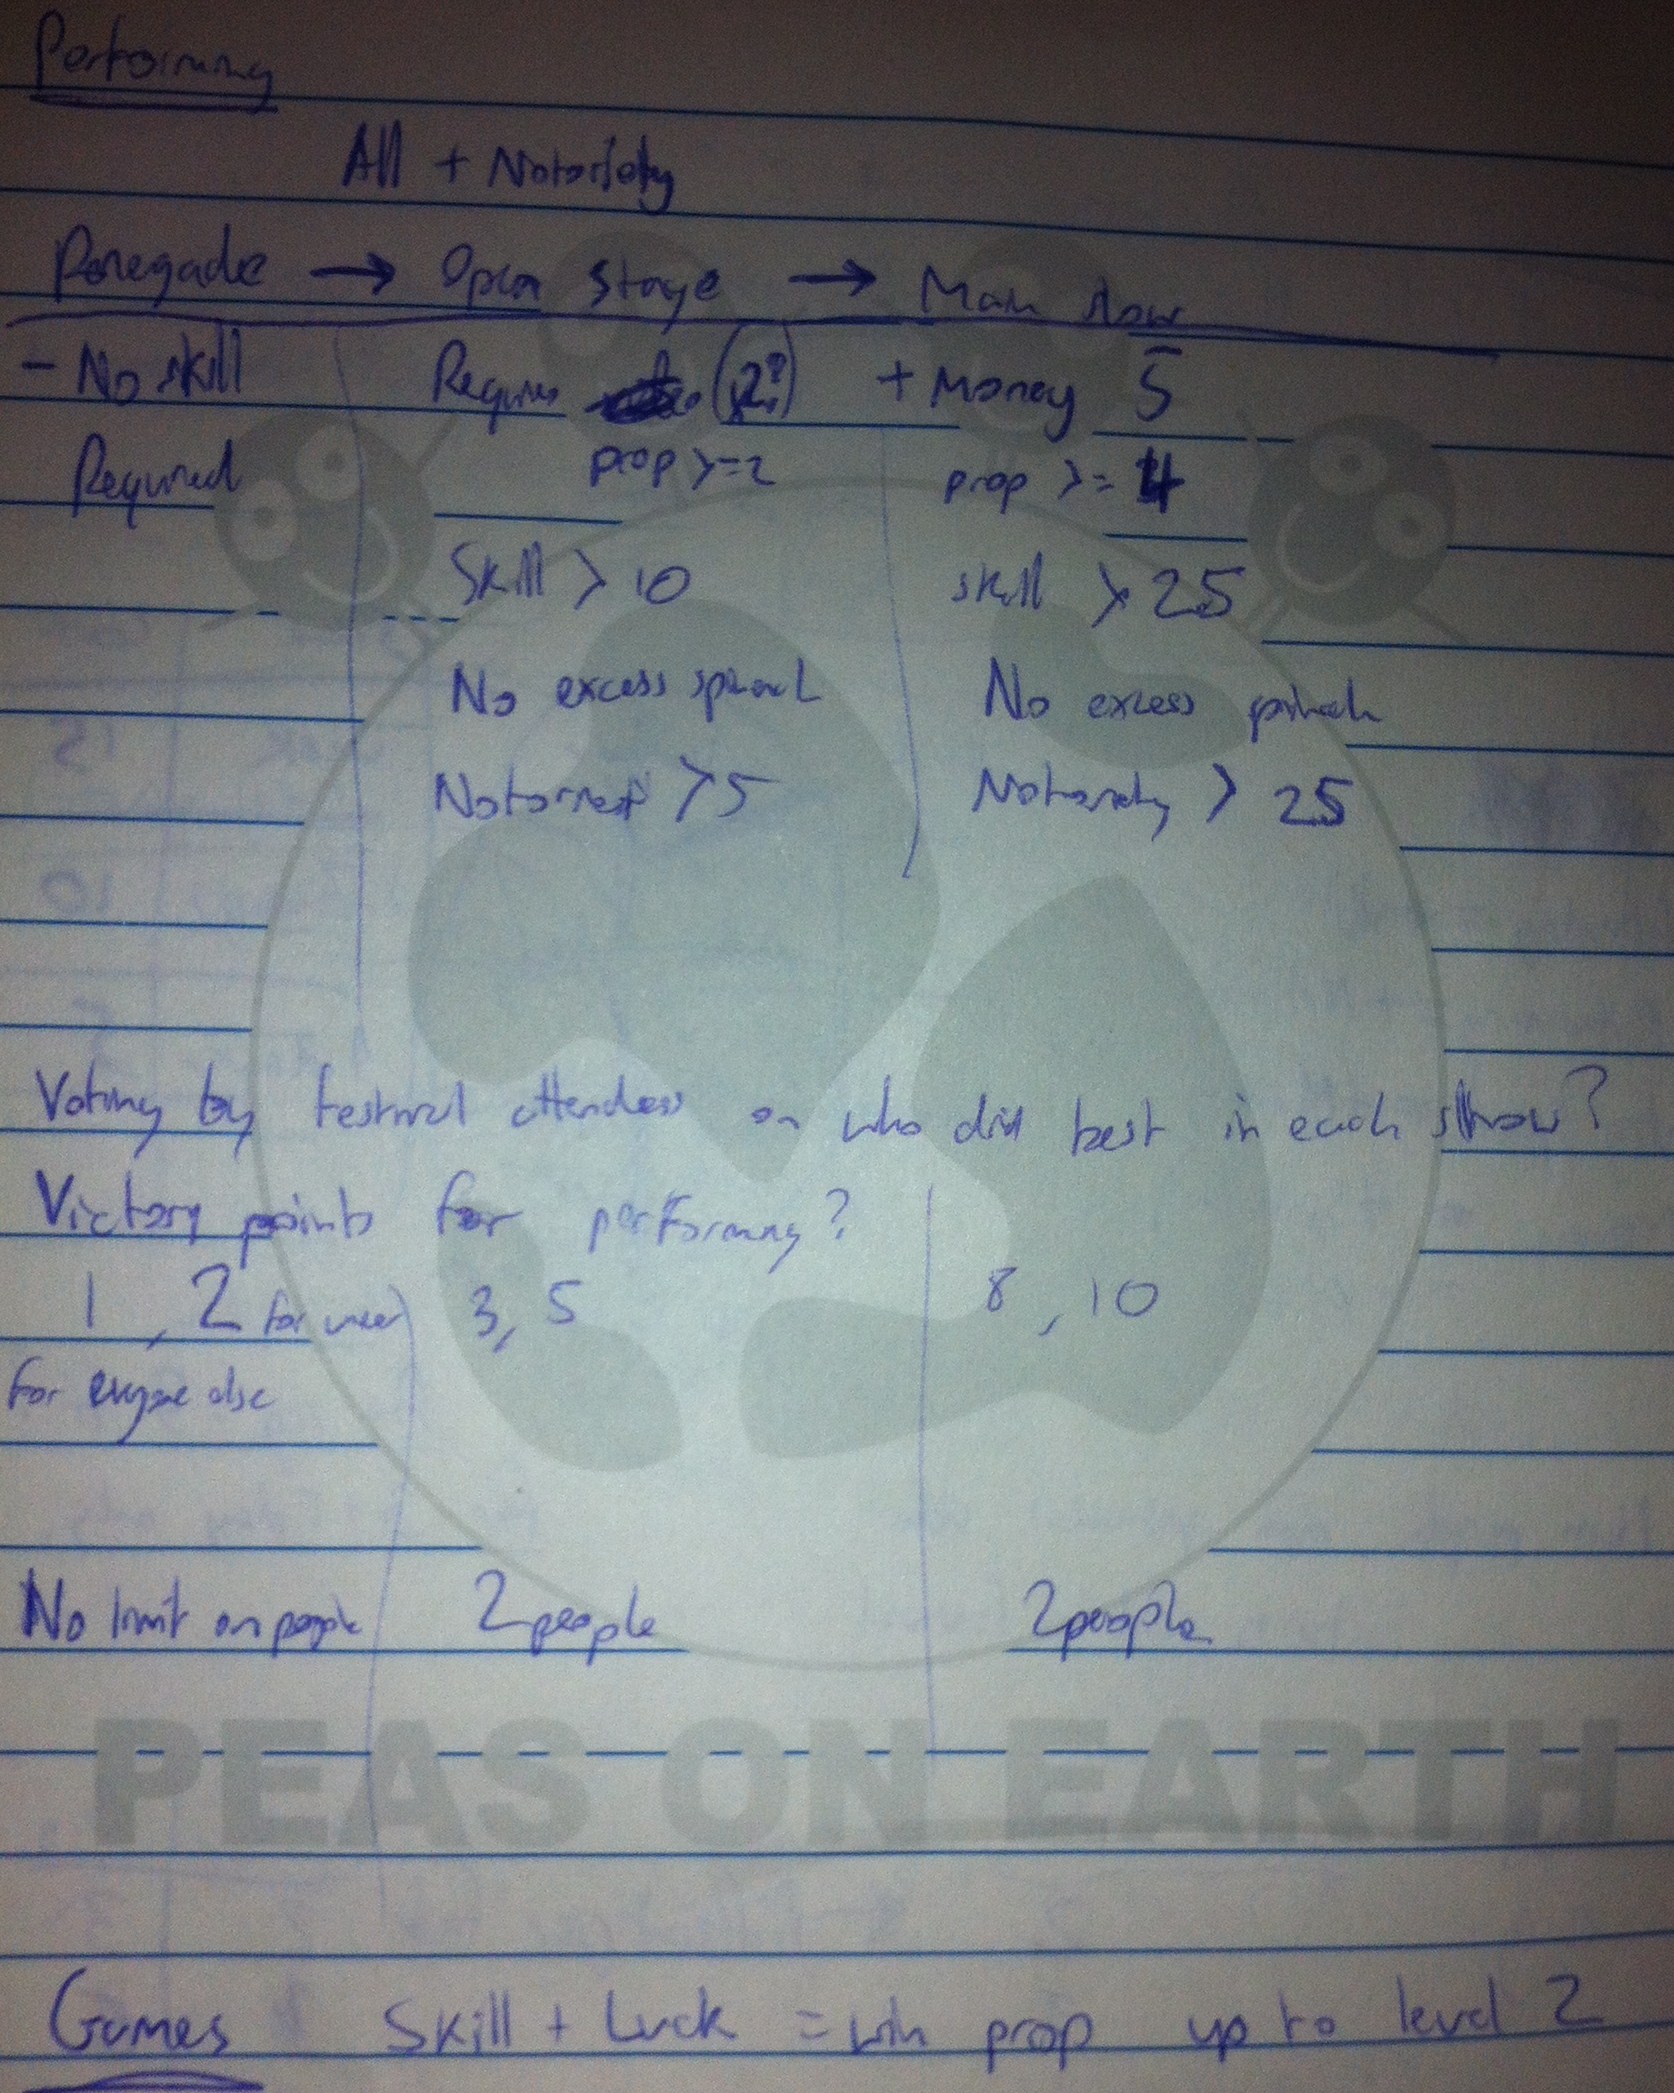 Performing
All + Notoriety
Renegade → Open Stage → Main show
- No skill Requires (2?) + Money 5
Required prop >=2 prop >= 4
Skill > 10 skill > 25
No excess No excess
> 5 Notoriety > 25
Voting by festival attendess on who did best in each show?
Victory points for performing?
1, 2 for 3, 5 8, 10
for else
No limit on people 2 people 2 people
PEAS ON EARTH
Games Skill + Luck = win prop up to level 2